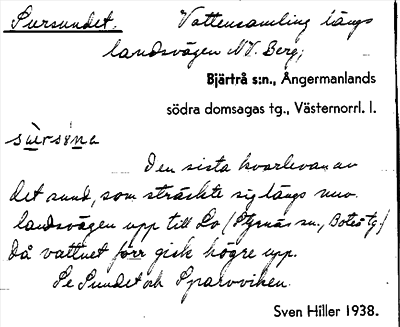 Sursundet. Vattensamling längs
landsvägen NV. Berg;
Bjärtrå s:n., Ångermanlands
södra domsagas tg., Västernorrl. l.
sùrsúna
Den sista kvarlevan av
det sund, som sträckte sig längs nuv.
landsvägen upp till Lo (Styrnäs sn., Boteå tg.)
då vattnet förr gick högre upp.
Se Sundet och Sparrviken.
Sven Hiller 1938.